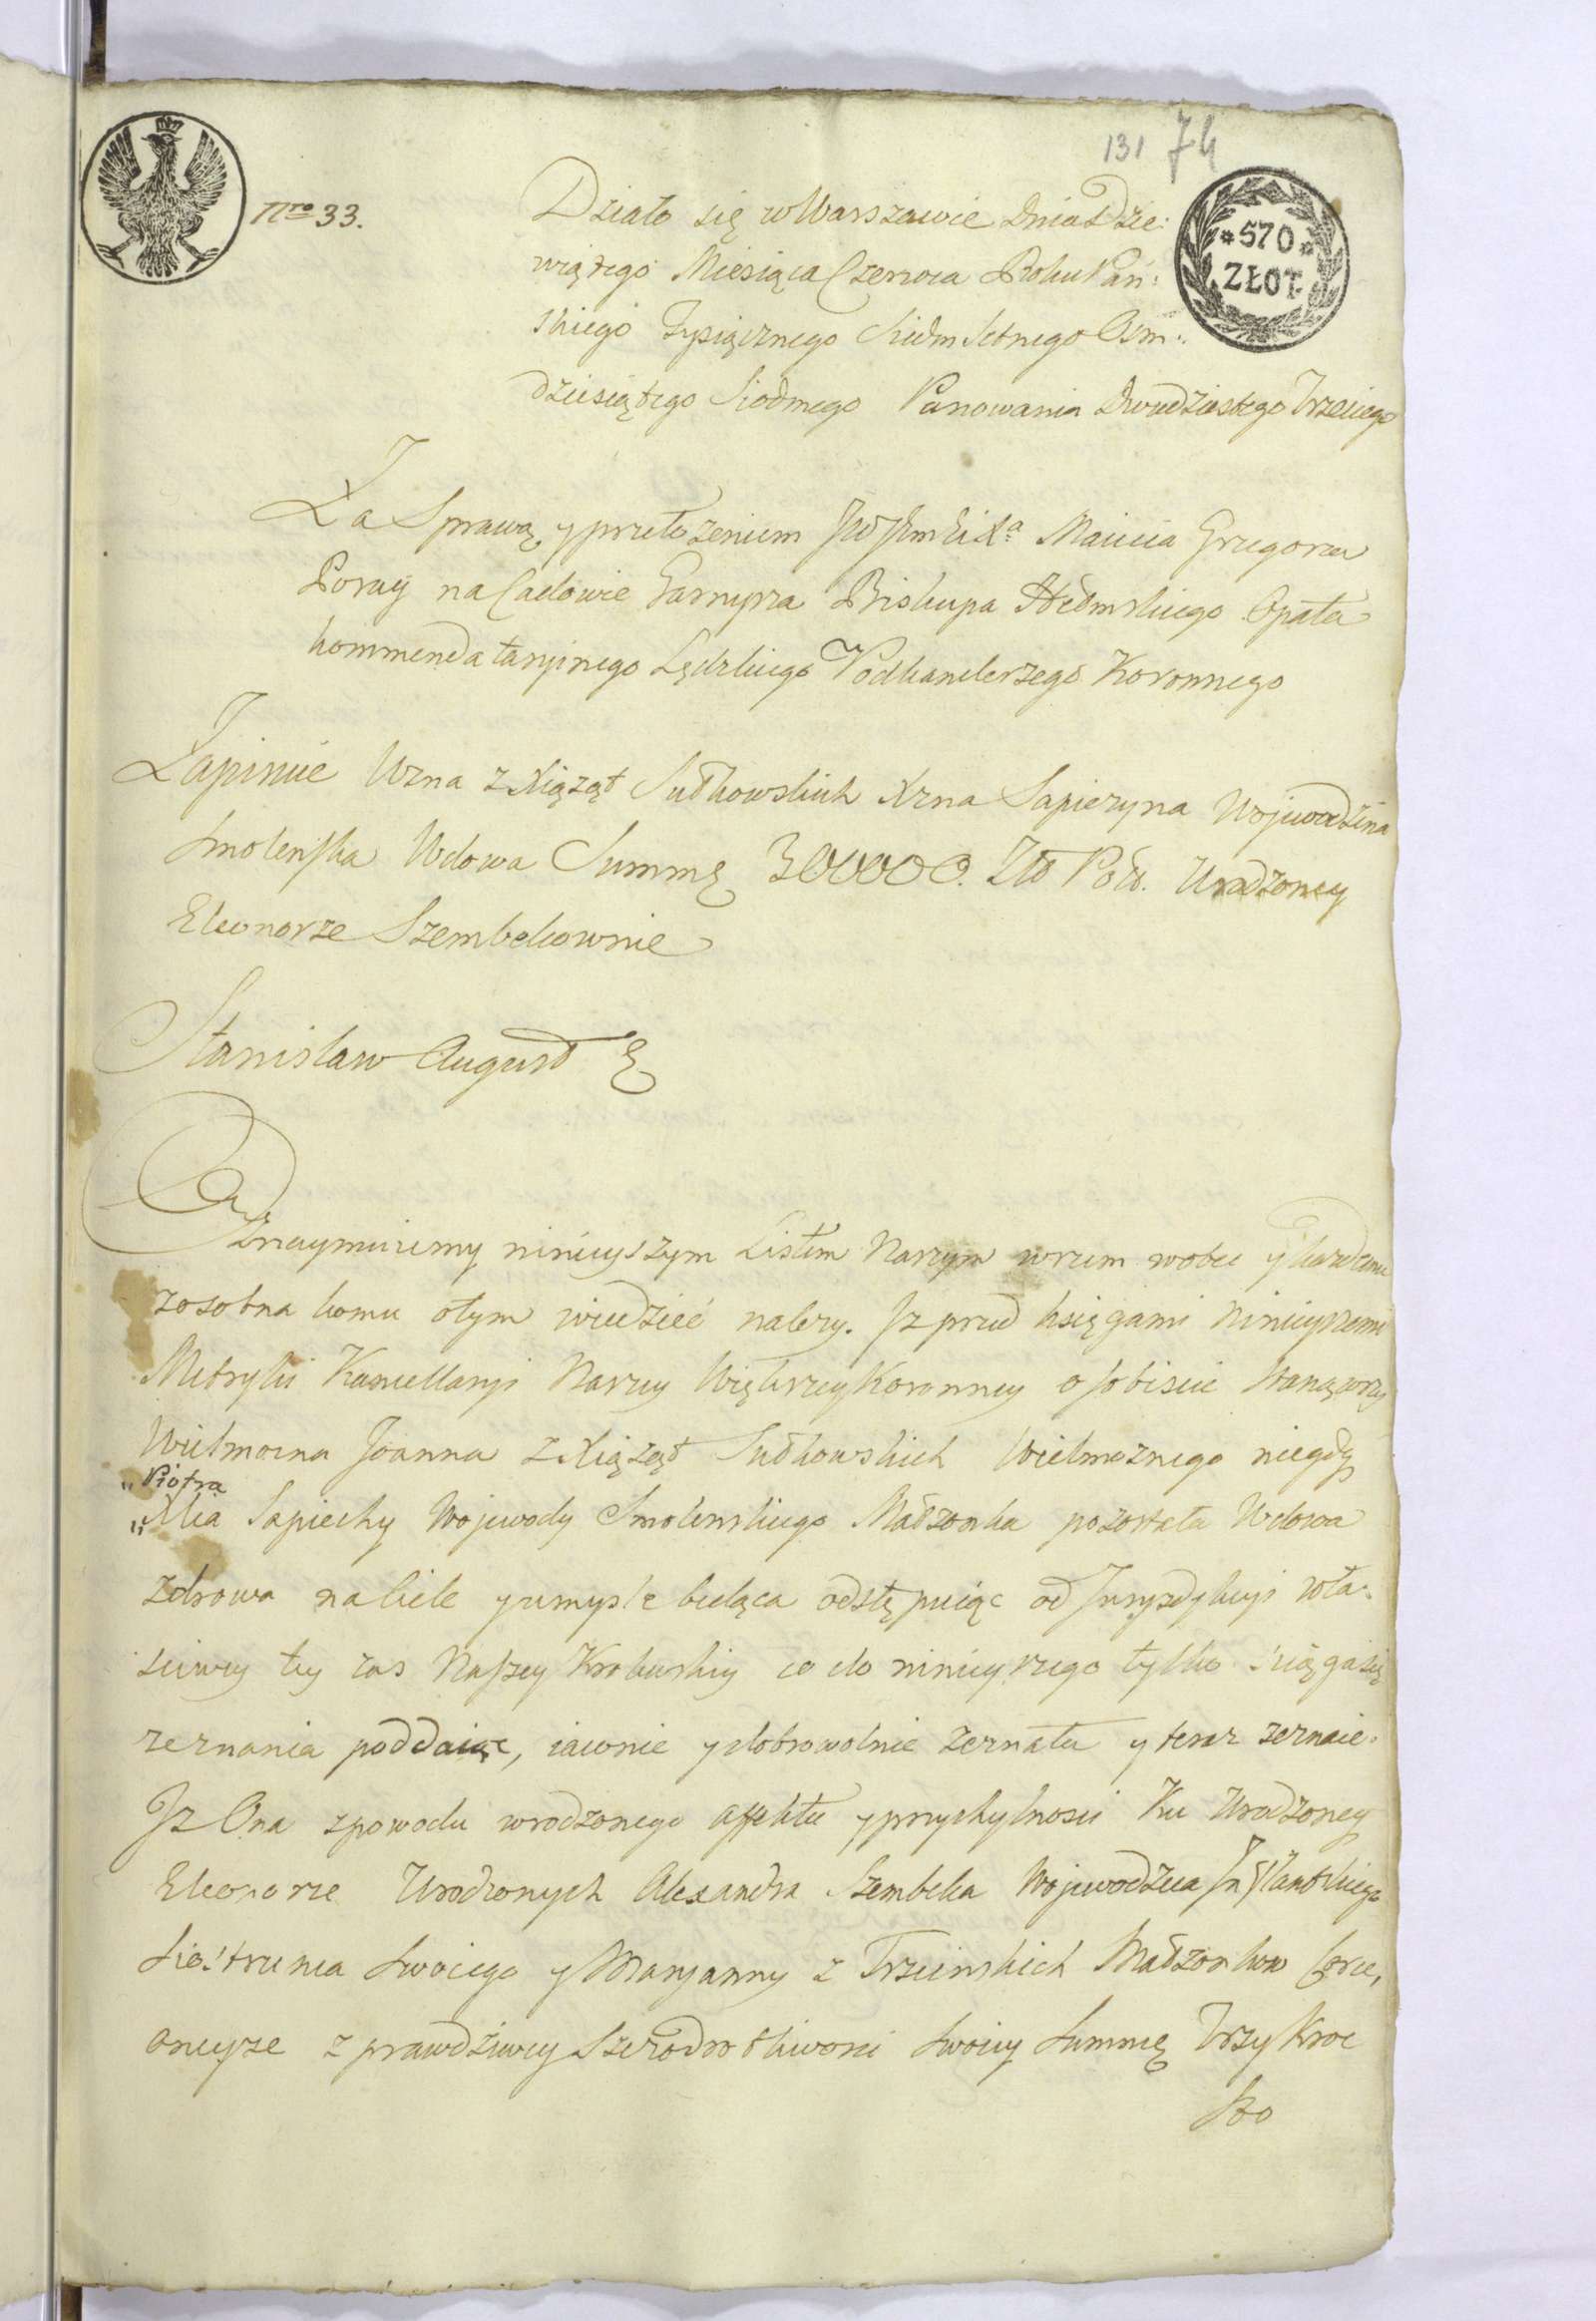 131 74
Nro 33.
*570*
ZŁOT.
Działo się w Warszawie Dnia Dzie:
wiątego Miesiąca Czerwca Roku Pań:
skiego Tysiącznego Siedm Setnego Osm:
dziesiątego Siodmego Panowania Dwudziestego Trzeciego
Za Sprawą y przełożeniem Macieia Grzegorza
Poray na Garnysza Biskupa Chełmskiego Opata
kommendataryinego Lędzkiego Podkanclerzego Koronnego
Zapisuie Wzna z Xiążąt Sułkowskich Xzna Sapieżyna Wojewodzina
Smolenska Wdowa Summę 300000. Zło Pols. Urodzoney
Eleonorze Szembekownie
Stanisław August
Oznaymuiemy ninieyszym Listem Naszym wszem wobec y każdemu
zosobna komu otym wiedzieć należy. Iz przed księgami ninieyszemi
Metryki Kancellaryi Naszey Większey Koronney osobiscie stanąwszy
Wielmożna Joanna z Xiążąt Sułkowskich Wielmożnego niegdy
„Piotra
„ Sapiehy Wojewody Smolenskiego Małżonka pozostała Wdowa
zdrowa na ciele y umysle będąca odstępuiąc od Juryzdykcyi wła:
sciwey tey zas Naszey Krolewskiey co do ninieyszego tylko sciąga się
zeznania poddaiąc, iawnie y dobrowolnie zeznała y teraz zeznaie.
Iz Ona zpowodu wrodzonego affektu y przychylnosci Ku Urodzoney
Eleonorze Urodzonych Alexandra Szembeka Wojewodzica Inflantskiego
Siostrzenca Swoiego y Maryanny z Trzcinskich Małżonkow Corce,
oneyze z prawdziwey Szczodrobliwosci Swoiey Summę Trzykroc
Sto